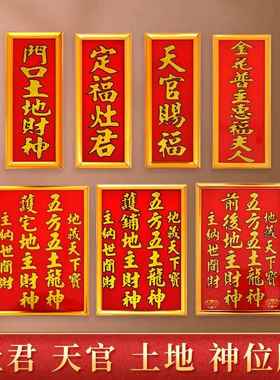 門口土地財神
定福灶君
天官賜福
金花普主惠福夫人
地藏天下寶
五方五土龍神
護宅地主財神
主納世間財
地藏天下寶
五方五土龍神
護鋪地主財神
主納世間財
地藏天下寶
五方五土龍神
前後地主財神
主納世間財
君 天官 土地 神位